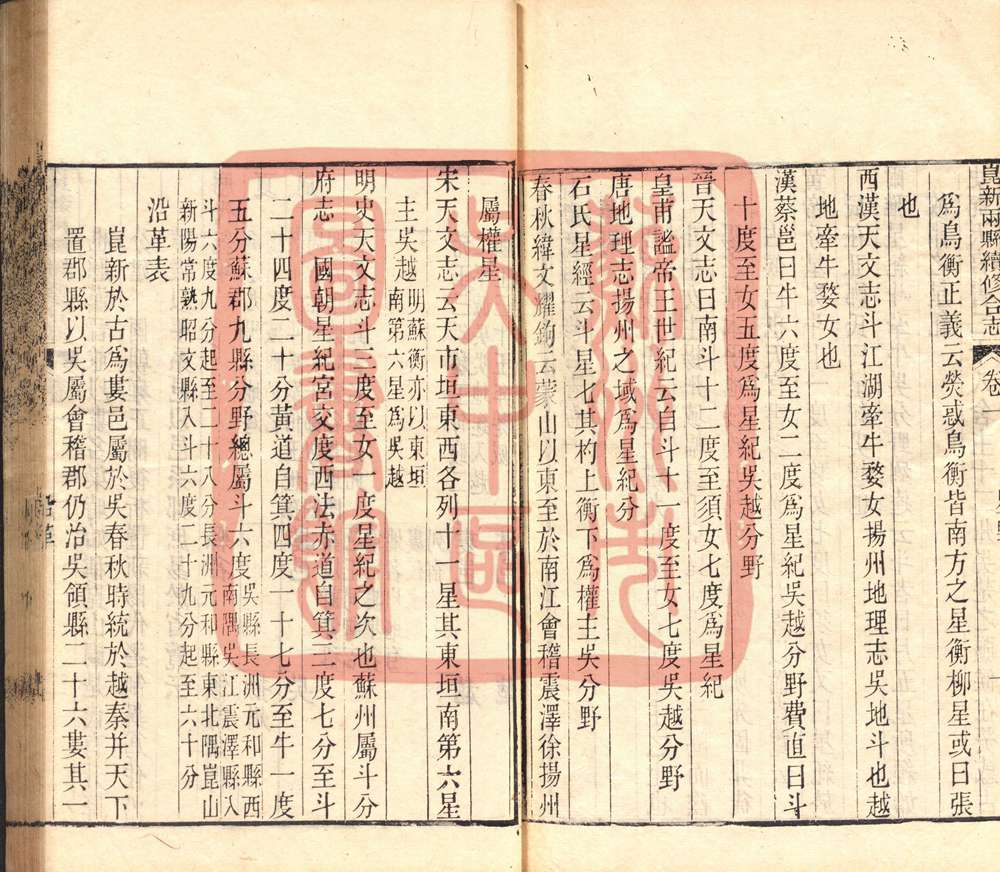 崑新兩縣續修合志 卷一
爲鳥衡正義云熒惑鳥衡皆南方之星衡柳星或曰張
也
西漢天文志斗江湖牽牛婺女揚州地理志吳地斗也越
地牽牛婺女也
漢蔡邕曰牛六度至女二度爲星紀吳越分野費直曰斗
十度至女五度爲星紀吳越分野
晉天文志曰南斗十二度至須女七度爲星紀
皇甫謐帝王世紀云自斗十一度至女七度吳越分野
唐地理志揚州之域爲星紀分
石氏星經云斗星七其杓上衡下爲權主吳分野
春秋緯文耀鉤云蒙山以東至於南江會稽震澤徐揚州
屬權星
宋天文志云天市垣東西各列十一星其東垣南第六星
主吳越明蘇衡亦以東垣
南第六星爲吳越
明史天文志斗三度至女一度星紀之次也蘇州屬斗分
府志 國朝星紀宮交度西法赤道自箕三度七分至斗
二十四度二十分黃道自箕四度一十七分至牛一度
五分蘇郡九縣分野總屬斗六度吳縣長洲元和縣西
南隅吳江震澤縣入
斗六度九分起至二十八分長洲元和縣東北隅崑山
新陽常熟昭文縣入斗六度二十九分起至六十分
沿革表
崑新於古爲婁邑屬於吳春秋時統於越秦并天下
置郡縣以吳屬會稽郡仍治吳領縣二十六婁其一
蘇州市
大中區
圖書館